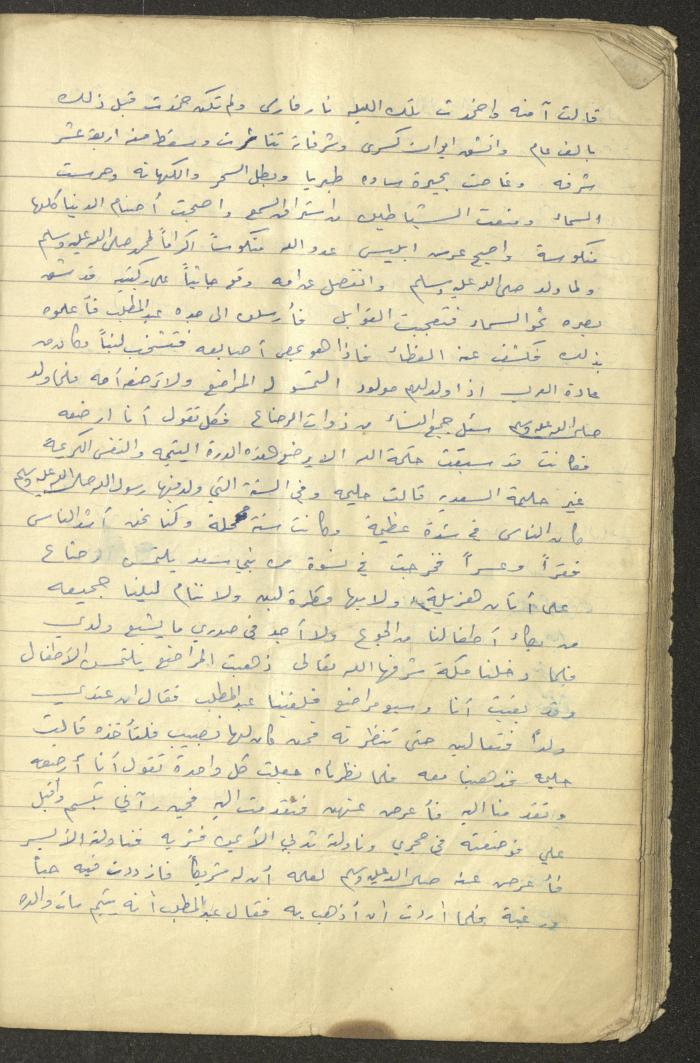 قالت آمنه واخمدت تلك الليله نار فارس ولم تكن خمدت قبل ذلك
بالف عام وانشق ايوان كسرى وشرفاته تناثرت وسقط منه اربعة عشر
شرفه وغاضت بحيرة ساوه طبريا وبطل السحر والكهانه وحرست
السماء ومنعت الشياطين من استراق السمع واصبحت أصنام الدنيا كلها
منكوسة واصبح عرش ابليس عدو الله منكوساً اكراماً لمحمد صلى الله عليه وسلم
ولما ولد صلى الله عليه وسلم وانفصل عن امه وقع جاثياً على ركبتيه قد شق
بصره نحو السماء فتعجبت القوابل فأرسلن الى جده عبد المطلب فأعلموه
بذلك فكشف عنه الغطاء فاذا هو يمص أصابعه فتشخب لبناً وكان من
عادة العرب اذا ولد لهم مولود التمسو له المراضع ولا ترضعه أمه فلما ولد
صلى الله عليه وسلم سئل جميع النساء من ذوات الرضاع فكل تقول أنا ارضعه
فكانت قد سبقت حكمة الله الا يرضع هذه الدرة اليتيمه والنفس الكريمه
غير حليمة السعديه قالت حليمه وفي السنة التي ولد فيها رسول الله صلى الله عليه وسلم
كان الناس في شدة عظيمة وكانت سنة ممحلة وكنا نحن أشد الناس
فقراً وعسراً فخرجت في نسوة من بني سعد يلتمسن الرضاع
على أتان هزيلة ولا بها قطرة لبن ولا ننام ليلنا جميعه
من بكاء أطفالنا من الجوع ولا أجد في صدري ما يشبع ولدي
فلما دخلنا مكة شرفها الله تعالى ذهبت المراضع يلتمسن الأطفال
وقد بقيت أنا وسبع مراضع فلقينا عبد المطلب فقال ان عندي
ولداً فتعالين حتى تنظرنه فمن كان لها نصيب فلتأخذه قالت
حليمه فذهبنا معه فلما نظرناه جعلت كل واحدة تقول أنا أرضعه
وتقدمنا اليه فأعرض عنهن فتقدمت اليه فحين رآني تبسم واقبل
علي فوضعته في حجري وناولته ثديي الأيمن فشربه فناولته الأيسر
فأعرض عنه صلى الله عليه وسلم لعلمه أن له شريكاً فازددت فيه حباً
ورغبة فلما أردت أن أذهب به فقال عبد المطلب أنه يتيم مات والده